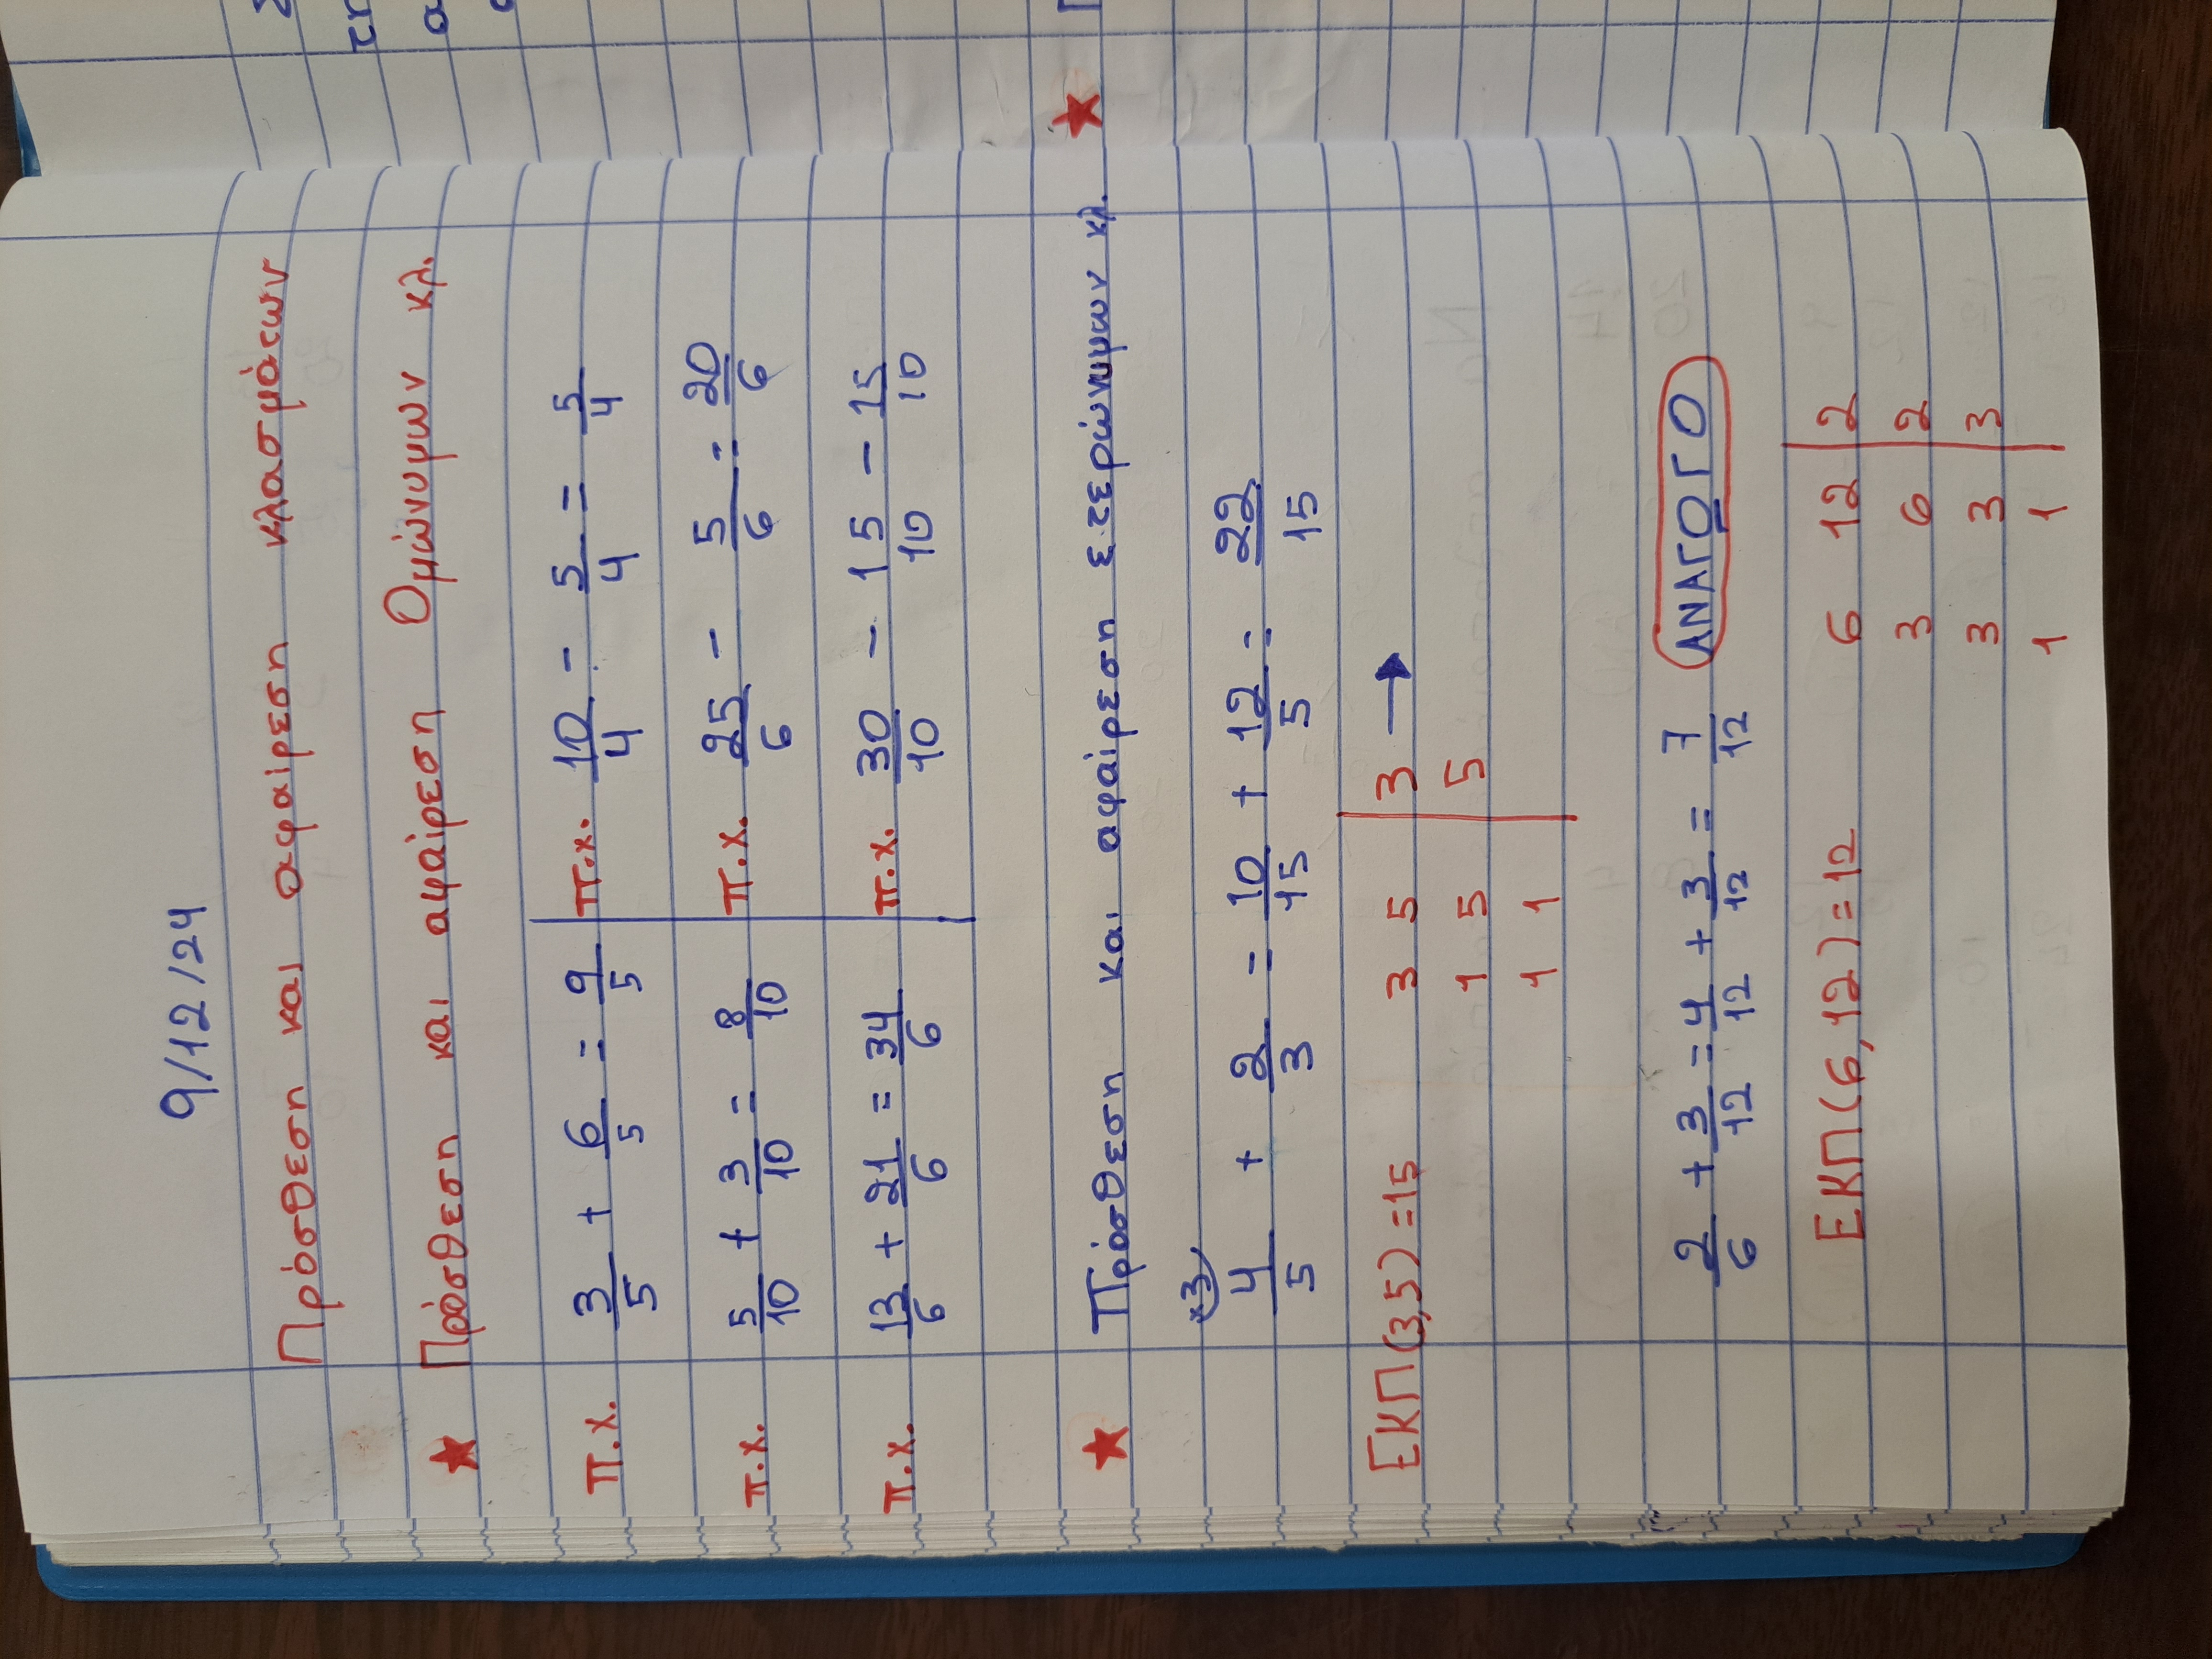 9/12/24
Πρόσθεση και αφαίρεση κλασμάτων
★ Πρόσθεση και αφαίρεση Ομώνυμων κλ.
π.χ. 3/5 + 6/5 = 9/5 π.χ. 10/4 - 5/4 = 5/4
π.χ. 5/10 + 3/10 = 8/10 π.χ. 25/6 - 5/6 = 20/6
π.χ. 13/6 + 21/6 = 34/6 π.χ. 30/10 - 15/10 - 15/10
★ Πρόσθεση και αφαίρεση ετερώνυμων κλ. ★
(×3)
4/5 + 2/3 = 10/15 + 12/5 = 22/15
ΕΚΠ(3,5)=15 3 5 | 3 →
1 5 | 5
1 1
2/6 + 3/12 = 4/12 + 3/12 = 7/12 ΑΝΑΓΟΓΟ
ΕΚΠ(6,12)=12 6 12 | 2
3 6 | 2
3 3 | 3
1 1